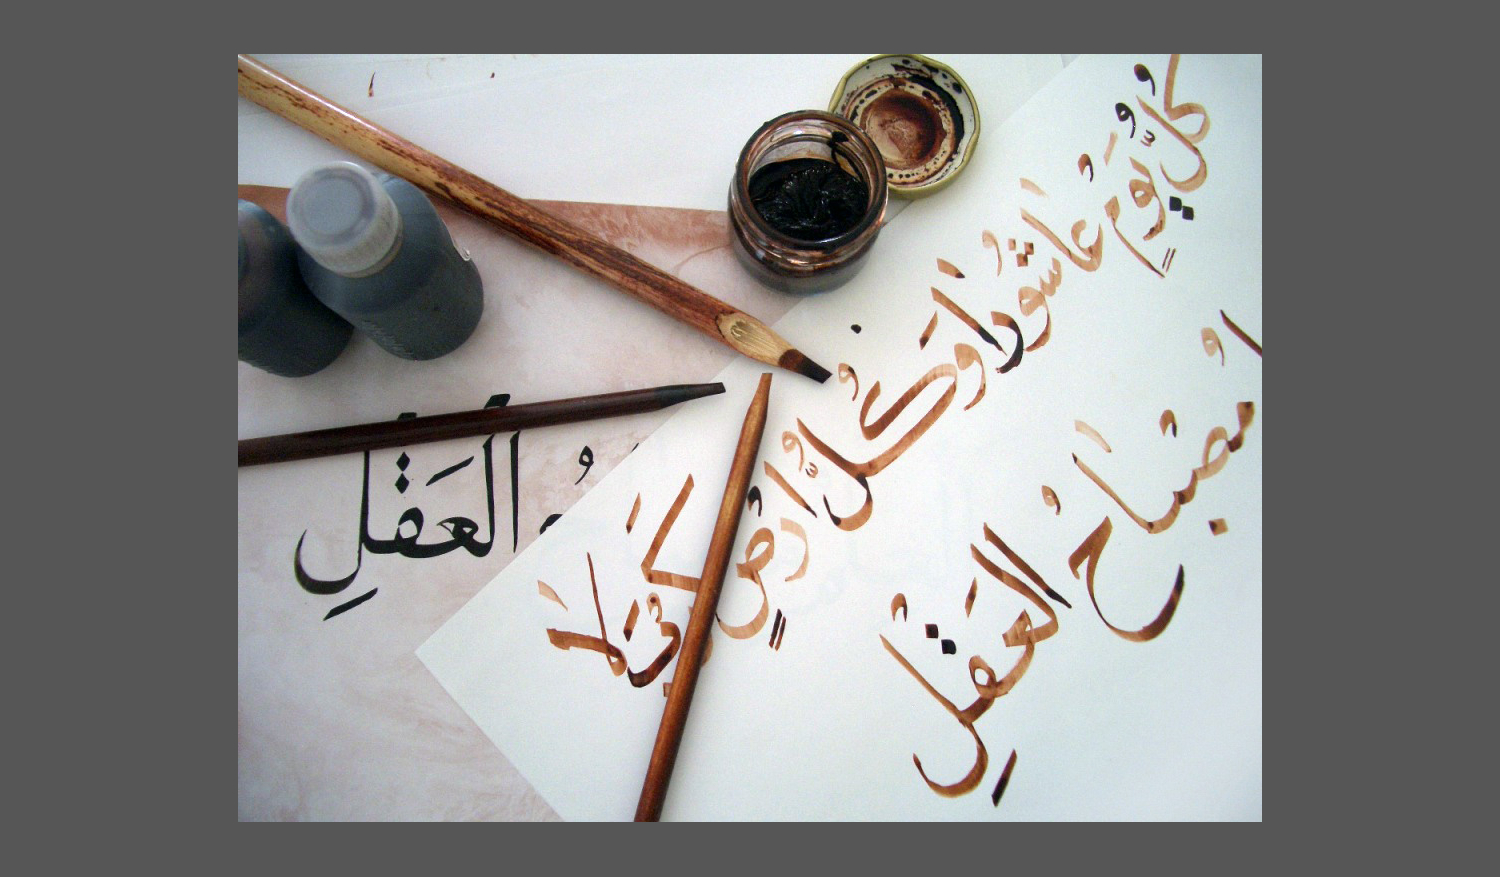 كُلُّ يَوْمٍ عَاشُورَا وَكُلُّ أَرْضٍ كَرْبَلَا
مِصْبَاحُ الْعَقْلِ
الْعَقْلِ